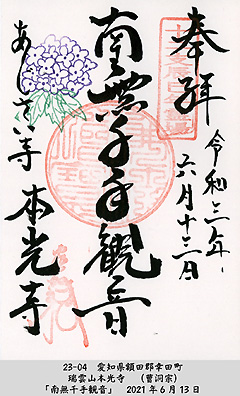 奉拝
令和三年
六月十三日
南無千手観音
あじさい寺
本光寺
23-04 愛知県額田郡幸田町
瑞雲山本光寺 (曹洞宗)
「南無千手観音」 2021年6月13日